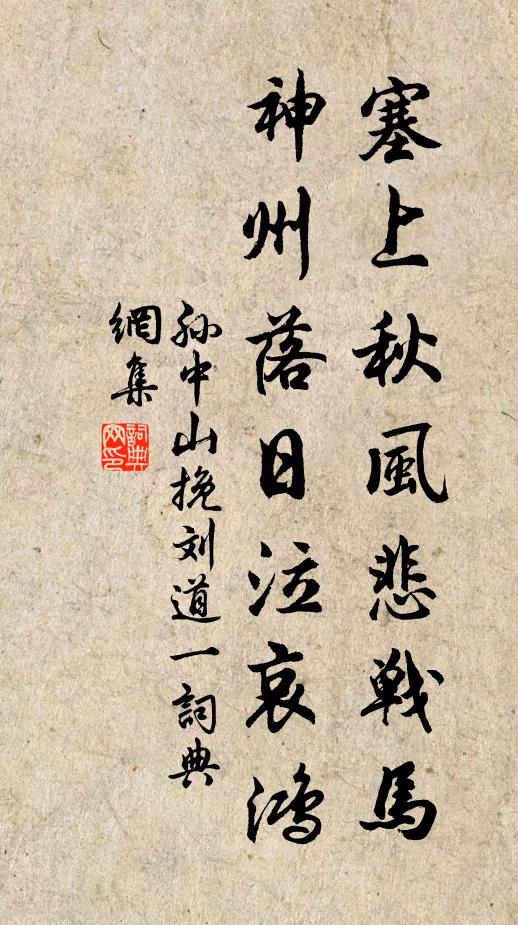 塞上秋風悲戰馬
神州落日泣哀鴻
孫中山挽刘道一詞典
網集
詞典
网印